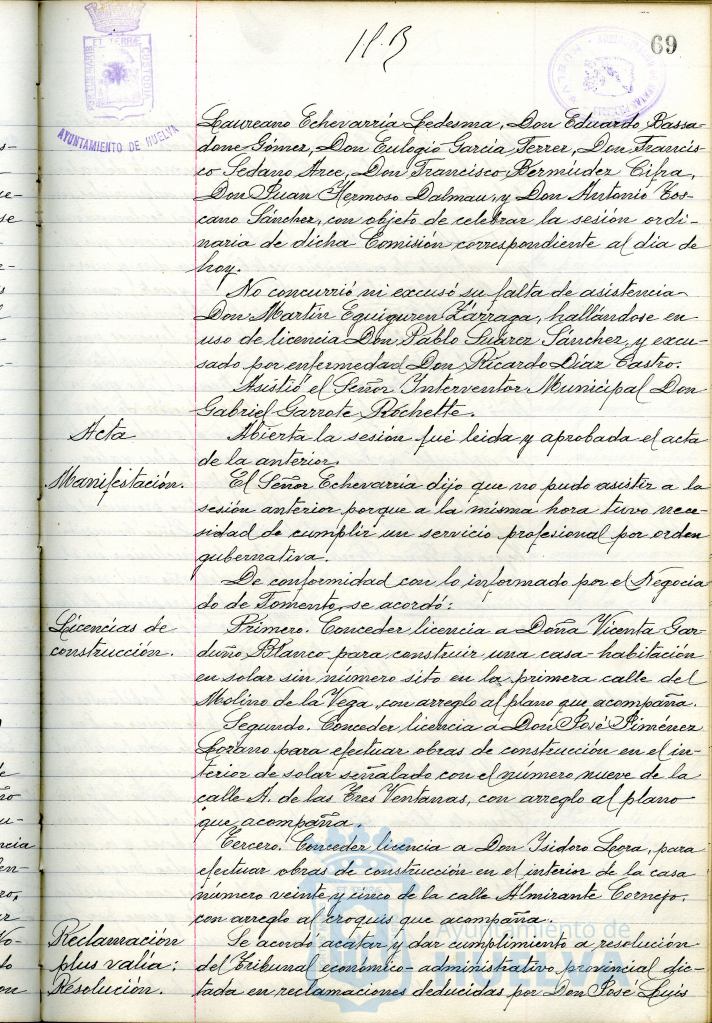 69
AYUNTAMIENTO DE HUELVA
Laureano Echevarría Ledesma, Don Eduardo Bassa-
done Gómez, Don Eulogio García Ferrer, Don Francis-
co Sedano Arce, Don Francisco Bermúdez Cifra,
Don Juan Hermoso Dalmau, y Don Antonio Tos-
cano Sánchez, con objeto de celebrar la sesión ordi-
naria de dicha Comisión correspondiente al día de
hoy.
No concurrió ni excusó su falta de asistencia
Don Martín Eguiguren Zárraga, hallándose en
uso de licencia Don Pablo Suárez Sánchez, y excu-
sado por enfermedad Don Ricardo Díaz Castro.
Asistió el Señor Interventor Municipal Don
Gabriel Garrote Rochette.
Acta
Abierta la sesión fué leida y aprobada el acta
de la anterior.
Manifestación.
El Señor Echevarría dijo que no pudo asistir a la
sesión anterior porque a la misma hora tuvo nece-
sidad de cumplir un servicio profesional por orden
gubernativa.
De conformidad con lo informado por el Negocia
do de Fomento, se acordó:
Licencias de
construcción.
Primero. Conceder licencia a Doña Vicenta Gar-
duño Blanco para construir una casa-habitación
en solar sin número sito en la primera calle del
Molino de la Vega, con arreglo al plano que acompaña.
Segundo. Conceder licencia a Don José Jiménez
Lozano para efectuar obras de construcción en el in-
terior de solar señalado con el numero nueve de la
calle A. de las Tres Ventanas, con arreglo al plano
que acompaña.
Tercero. Conceder licencia a Don Isidoro Lora, para
efectuar obras de construcción en el interior de la casa
número veinte y cinco de la calle Almirante Cornejo,
con arreglo al croquis que acompaña.
Reclamación
plus valía:
Resolución.
Se acordó acatar y dar cumplimiento a resolución
del Tribunal económico-administrativo provincial dic-
tada en reclamaciones deducidas por Don José Luis
Ayuntamiento de
HUELVA